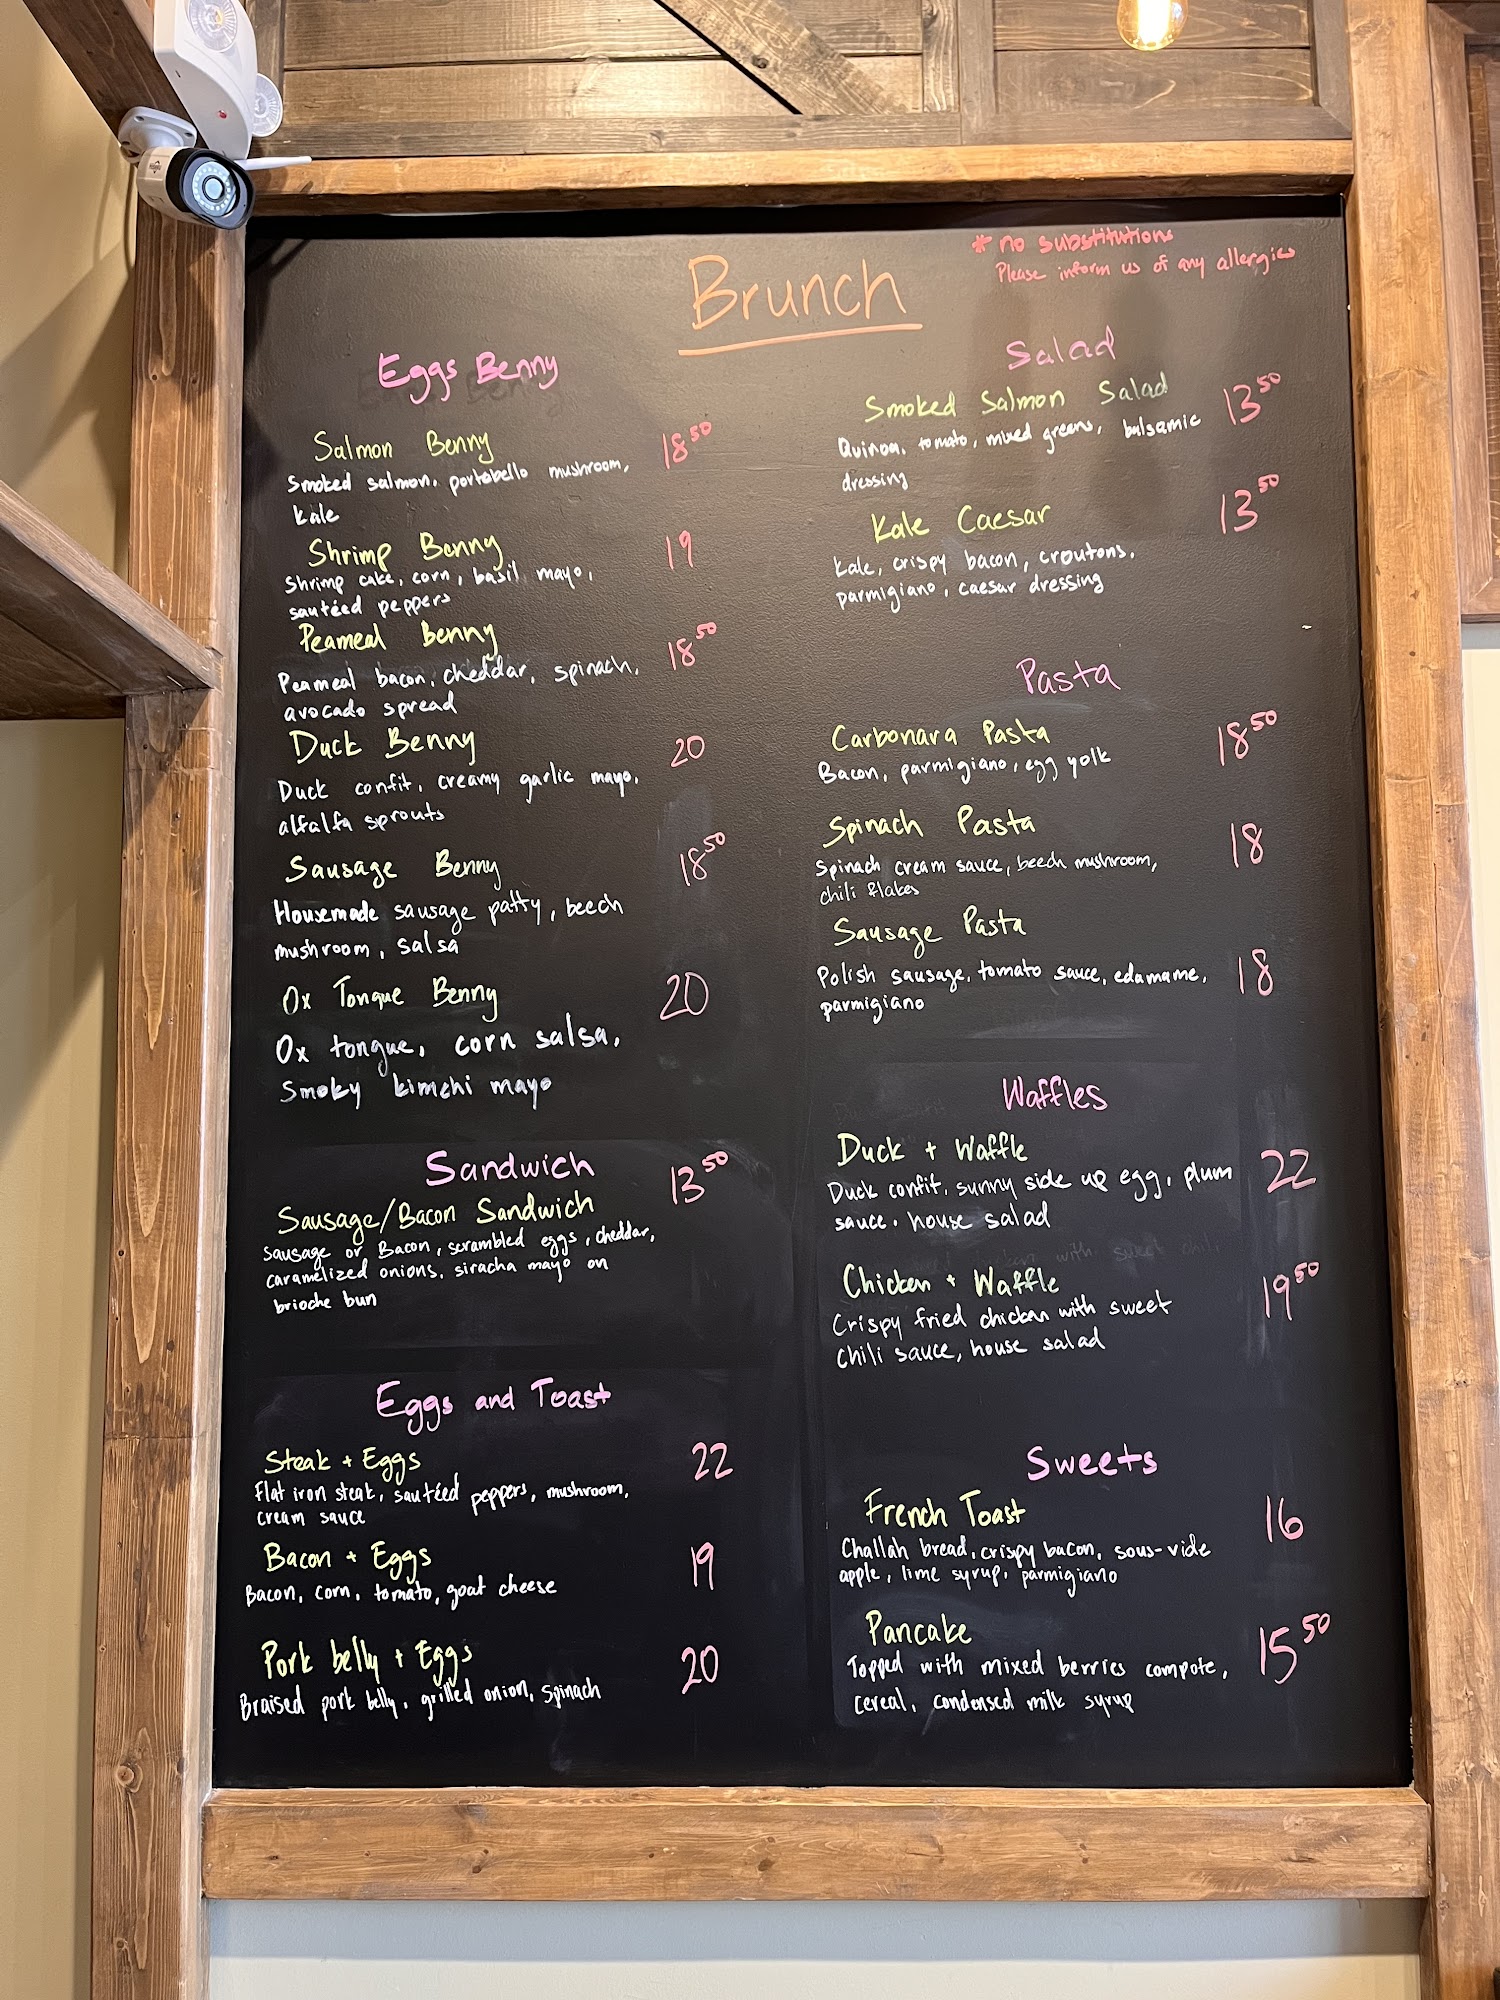 * no substitutions
Please inform us of any allergies
Brunch
Eggs Benny
Salmon Benny 18.50
Smoked salmon, portobello mushroom,
kale
Shrimp Benny 19
Shrimp cake, corn, basil mayo,
sautéed peppers
Peameal Benny 18.50
Peameal bacon, cheddar, spinach,
avocado spread
Duck Benny 20
Duck confit, creamy garlic mayo,
alfalfa sprouts
Sausage Benny 18.50
Housemade sausage patty, beech
mushroom, salsa
Ox Tongue Benny 20
Ox tongue, corn salsa,
Smoky kimchi mayo
Sandwich
Sausage/Bacon Sandwich 13.50
Sausage or Bacon, scrambled eggs, cheddar,
caramelized onions, siracha mayo on
brioche bun
Eggs and Toast
Steak + Eggs 22
Flat iron steak, sautéed peppers, mushroom,
cream sauce
Bacon + Eggs 19
Bacon, corn, tomato, goat cheese
Pork belly + Eggs 20
Braised pork belly, grilled onion, spinach
Salad
Smoked Salmon Salad 13.50
Quinoa, tomato, mixed greens, balsamic
dressing
Kale Caesar 13.50
Kale, crispy bacon, croutons,
parmigiano, caesar dressing
Pasta
Carbonara Pasta 18.50
Bacon, parmigiano, egg yolk
Spinach Pasta 18
Spinach cream sauce, beech mushroom,
chili flakes
Sausage Pasta
Polish sausage, tomato sauce, edamame, 18
parmigiano
Waffles
Duck + Waffle 22
Duck confit, sunny side up egg, plum
sauce, house salad
Chicken + Waffle 19.50
Crispy fried chicken with sweet
chili sauce, house salad
Sweets
French Toast 16
Challah bread, crispy bacon, sous-vide
apple, lime syrup, parmigiano
Pancake 15.50
Topped with mixed berries compote,
cereal, condensed milk syrup